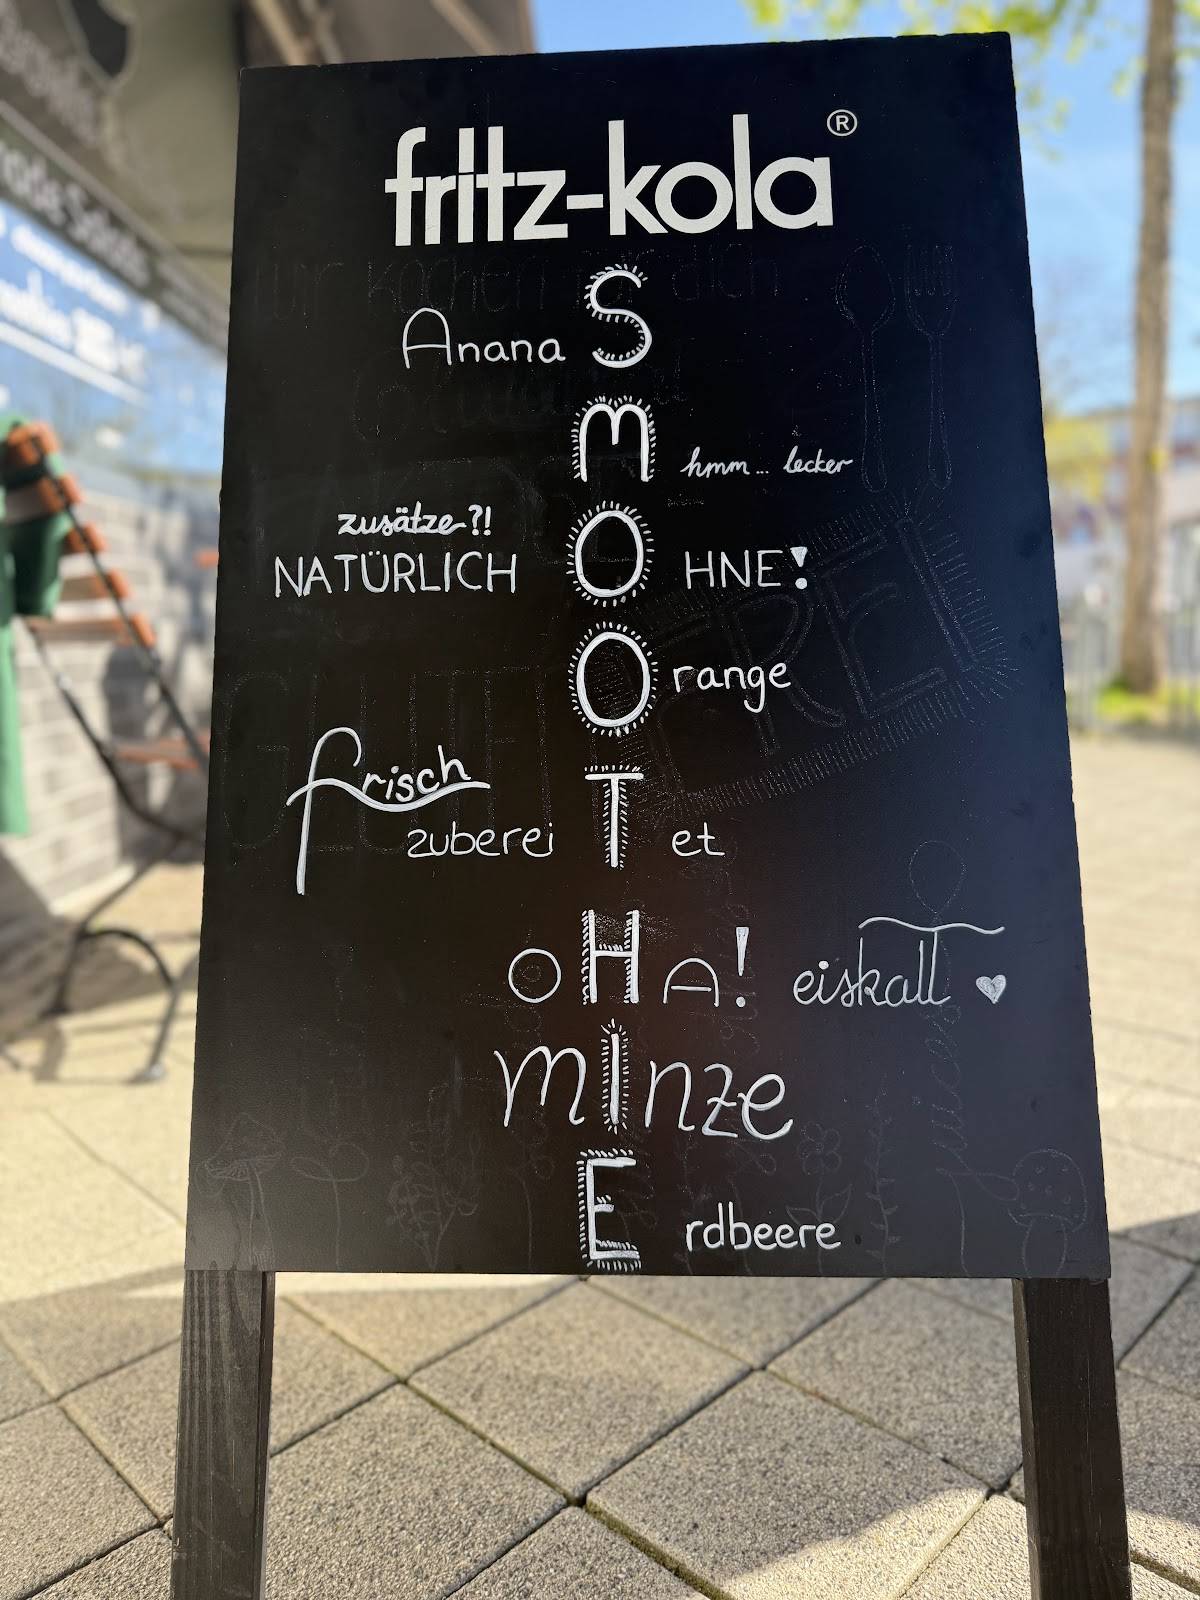 fritz-kola®
AnanaS
M hmm... lecker
zusätze?!
NATÜRLICH OHNE!
Orange
frisch
zubereiTet
oHA! eiskalt ♥
mInze
Erdbeere